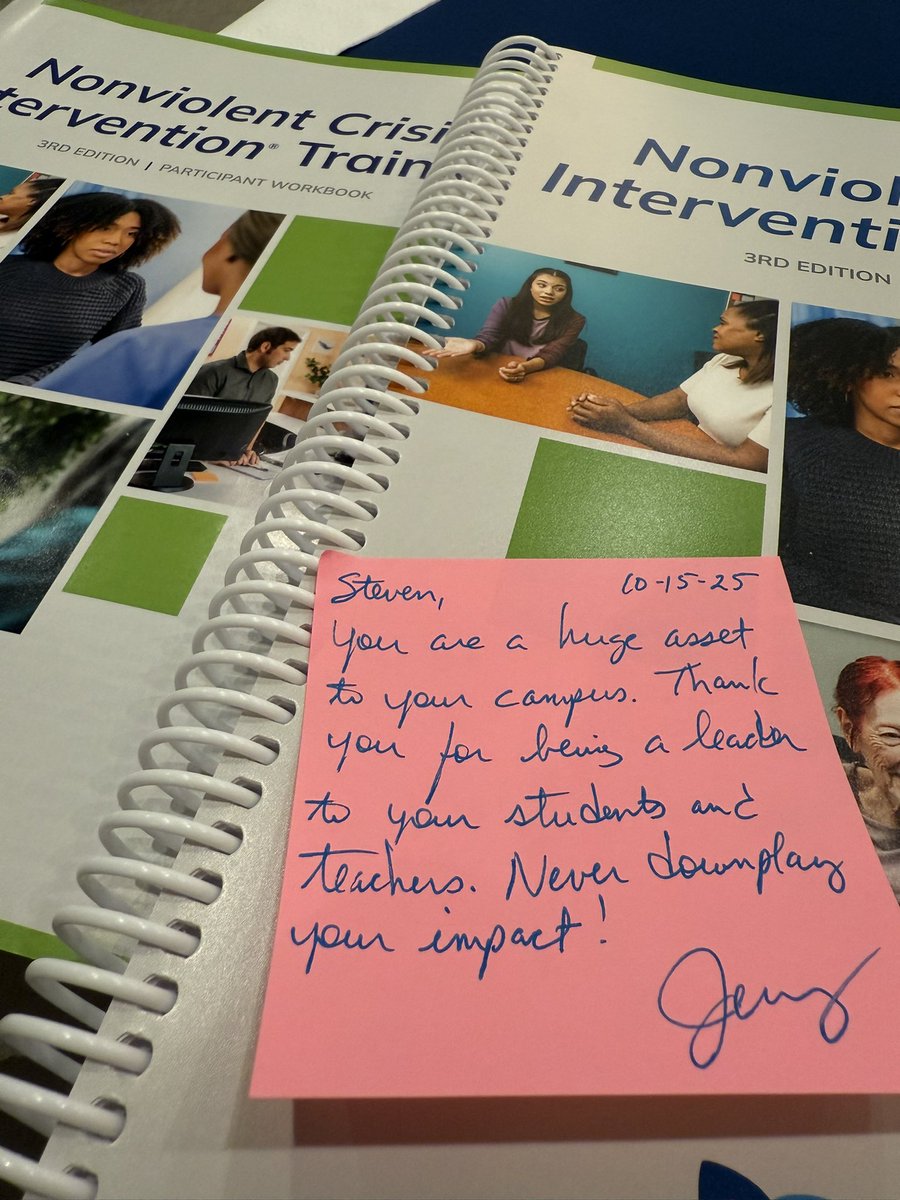 Nonviolent Crisi
tervention® Train
3RD EDITION | PARTICIPANT WORKBOOK
Nonviol
Interventi
3RD EDITION
Steven, 10-15-25
You are a huge asset
to your campus. Thank
you for being a leader
to your students and
teachers. Never downplay
your impact!